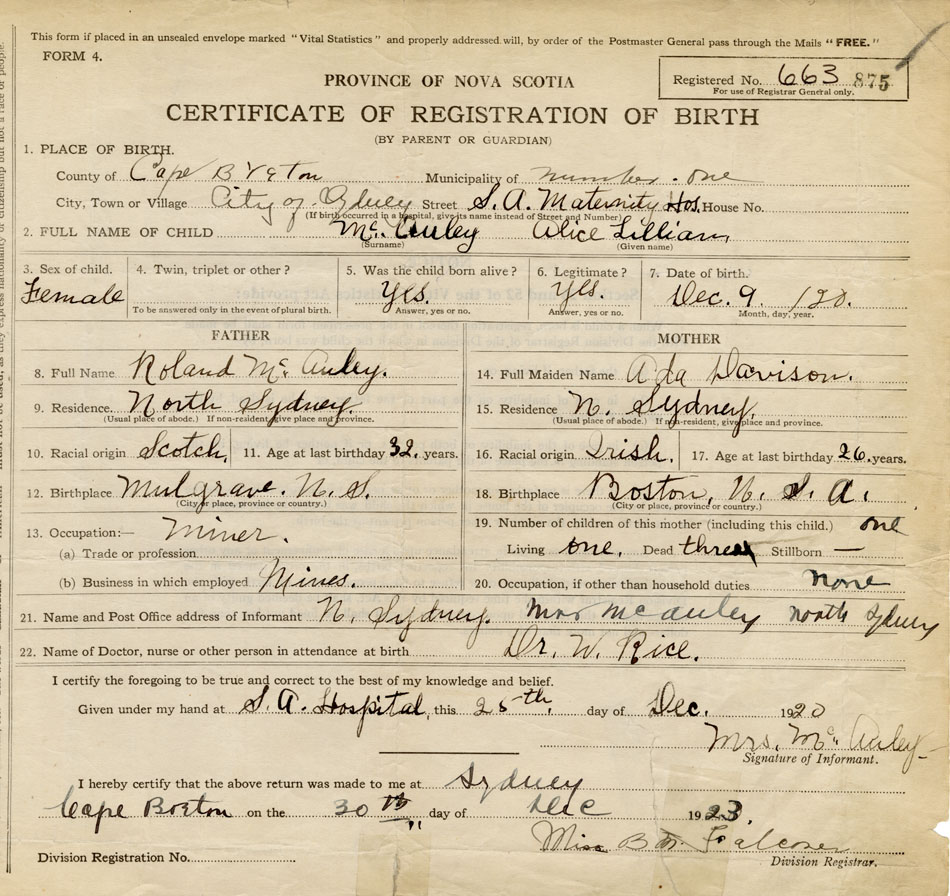 This form if placed in an unsealed envelope marked "Vital Statistics" and properly addressed will, by order of the Postmaster General pass through the Mails "FREE."
FORM 4.
Registered No. 663 875
For use of Registrar General only.
PROVINCE OF NOVA SCOTIA
CERTIFICATE OF REGISTRATION OF BIRTH
(BY PARENT OR GUARDIAN)
1. PLACE OF BIRTH.
County of Cape Breton Municipality of number one
City, Town or Village City of Sydney Street S. A. Maternity Hos. House No.
(If birth occurred in a hospital, give its name instead of Street and Number)
2. FULL NAME OF CHILD Mc. Auley Alice Lillian,
(Surname) (Given name)
3. Sex of child. 4. Twin, triplet or other? 5. Was the child born alive? 6. Legitimate? 7. Date of birth.
Female Yes. Yes. Dec. 9 /20.
To be answered only in the event of plural birth. Answer, yes or no. Answer, yes or no. Month, day, year.
FATHER
8. Full Name Roland Mc. Auley.
9. Residence. North Sydney.
(Usual place of abode.) If non-resident, give place and province.
10. Racial origin Scotch, 11. Age at last birthday 32. years.
12. Birthplace Mulgrave. N. S.
(City or place, province or country.)
13. Occupation:— Miner.
(a) Trade or profession
(b) Business in which employed Mines.
MOTHER
14. Full Maiden Name Ada Davison.
15. Residence N. Sydney.
(Usual place of abode.) If non-resident, give place and province.
16. Racial origin Irish. 17. Age at last birthday 26. years.
18. Birthplace Boston, U. S. A.
(City or place, province or country.)
19. Number of children of this mother (including this child.) one
Living one. Dead three Stillborn —
20. Occupation, if other than household duties none
21. Name and Post Office address of Informant N. Sydney. Mrs McAuley North Sydney
22. Name of Doctor, nurse or other person in attendance at birth Dr. W. Rice.
I certify the foregoing to be true and correct to the best of my knowledge and belief.
Given under my hand at S. A. Hospital, this 25th, day of Dec. 1920
Mrs. Mc Auley
Signature of Informant.
I hereby certify that the above return was made to me at Sydney
Cape Breton on the 30th day of Dec 1923.
Miss B Falconer
Division Registration No.
Division Registrar.